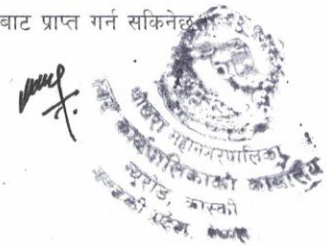 बाट प्राप्त गर्न सकिनेछ
पोखरा महानगरपालिका
नगर कार्यपालिकाको कार्यालय
न्यूरोड, कास्की
गण्डकी प्रदेश, नेपाल